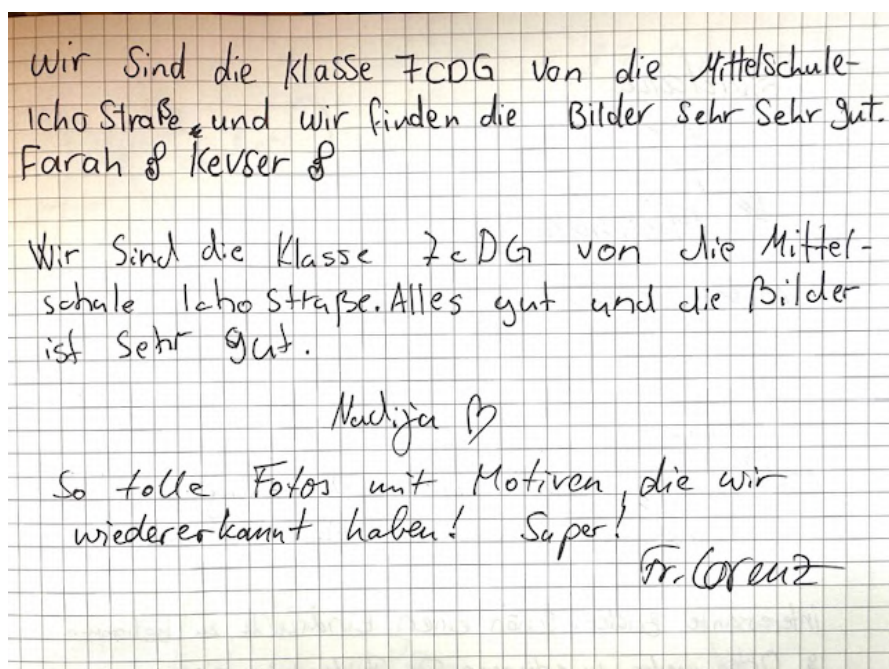 Wir Sind die Klasse 7CDG von die Mittelschule-
Icho Straße und wir finden die Bilder Sehr Sehr gut.
Farah & Kevser &
Wir Sind die Klasse 7cDG von die Mittel-
schule Icho Straße. Alles gut und die Bilder
ist Sehr gut.
Nadija ♡
So tolle Fotos mit Motiven, die wir
wiedererkannt haben! Super!
Fr. Lorenz